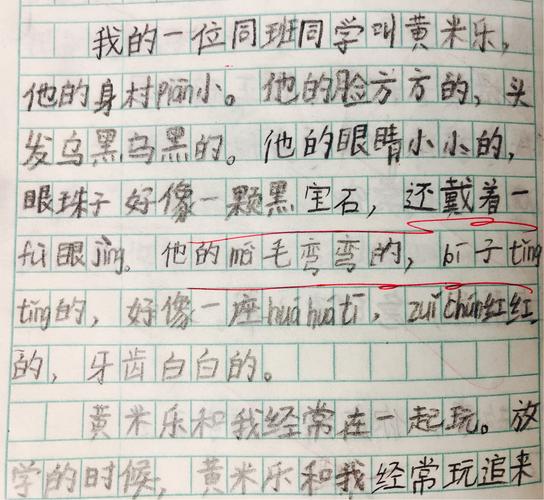 我的一位同班同学叫黄米乐,
他的身村piān小。他的脸方方的,头
发乌黑乌黑的。他的眼睛小小的,
眼珠子好像一颗黑宝石,还戴着一
fù眼jìng。他的méi毛弯弯的,bí子tǐng
tǐng的,好像一座huá huá tī,zuǐ chún红红
的,牙齿白白的。
黄米乐和我经常在一起玩。放
学的时候,黄米乐和我经常玩追来